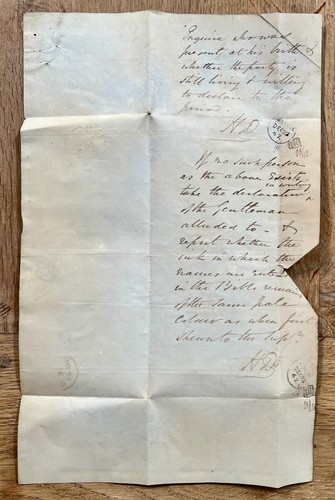 Enquire who was
present at his birth &
whether the party is
still living & willing
to declare to the
period.
HD
If no such person
as the above exists
in writing
take the declaration
of the Gentleman
alluded to - &
report whether the
ink in which the
names are entered
in the Bible remains
of the same pale
colour as when first
shewn to the
HD